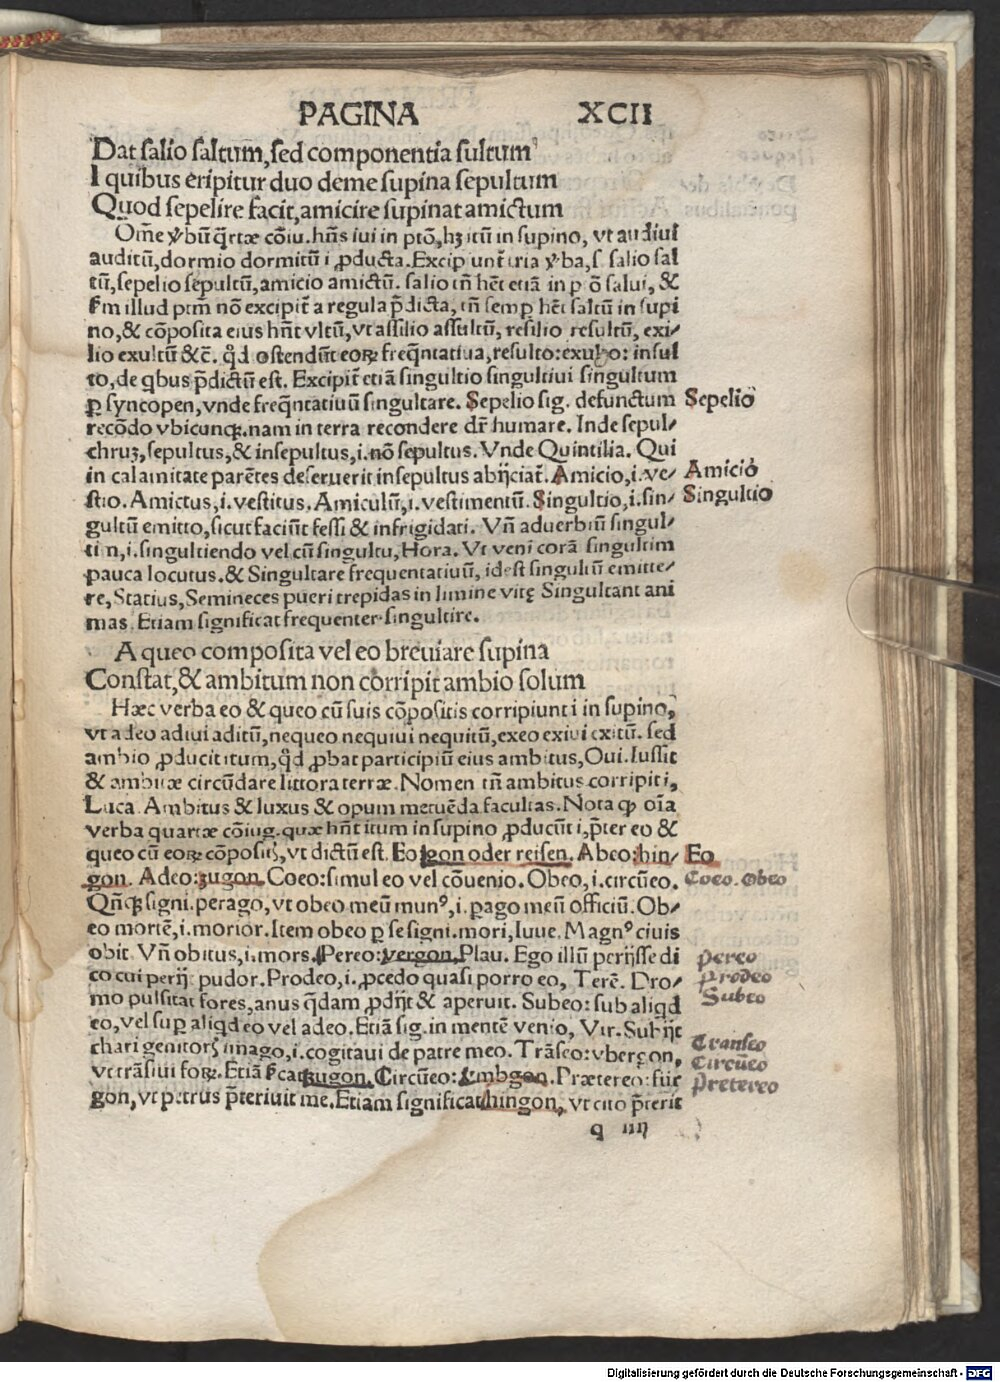 PAGINA XCII
Dat salio saltum, sed componentia sultum
I quibus eripitur duo deme supina sepultum
Quod sepelire facit, amicire supinat amictum
Om̄e v̓bū q̄rtæ cōiu. hn̄s iui in ptō, hꝫ itū in supino, vt audiui
auditū, dormio dormitū i ꝓducta. Excipiunt̄ tria v̓ba, s. salio sal
tū, sepelio sepultū, amicio amictū. salio tn̄ hēt etiā in p̄ō salui, &
ẜm illud ptm̄ nō excipit̄ a regula p̄dicta, tn̄ semp hēt saltū in supi
no, & cōposita eius hn̄t vltū, vt assilio assultū, resilio resultū, exi⸗
lio exultū &c̄. q̄d ostendūt eorꝝ freq̄ntatiua, resulto: exulto: insul
to, de qbus p̄dictū est. Excipit̄ etiā singultio singultiui singultum
ꝑ syncopen, vnde freq̄ntatiuū singultare. Sepelio sig. defunctum
Sepelio
recōdo vbicunqꝫ. nam in terra recondere dr̄ humare. Inde sepul⸗
chruꝫ, sepultus, & insepultus, i. nō sepultus. Vnde Quintilia. Qui
in calamitate parētes deseruerit insepultus abijciat̄. Amicio, i. ve⸗
Amicio
stio. Amictus, i. vestitus. Amiculū, i. vestimentū. Singultio, i. sin⸗
Singultio
gultū emitto, sicut faciūt fessi & infrigidati. Vn̄ aduerbiū singul⸗
tim, i. singultiendo vel cū singultu, Hora. Vt veni corā singultim
pauca locutus. & Singultare frequentatiuū, idest singultū emitte⸗
re, Statius, Semineces pueri trepidas in limine vitę Singultant ani
mas. Etiam significat frequenter singultire.
A queo composita vel eo breuiare supina
Constat, & ambitum non corripit ambio solum
Hæc verba eo & queo cū suis cōpositis corripiunt i in supino,
vt adeo adiui aditū, nequeo nequiui nequitū, exeo exiui exitū. sed
ambio ꝓducit itum, q̄d ꝓbat participiū eius ambitus, Oui. Iussit
& ambitæ circūdare littora terræ. Nomen tn̄ ambitus corripit i,
Luca. Ambitus & luxus & opum metuēda facultas. Nota qꝫ oīa
verba quartæ cōiug. quæ hn̄t itum in supino ꝓducūt i, p̄ter eo &
queo cū eorꝝ cōpositis, vt dictū est. Eo: gon oder reisen. Abeo: hin⸗
Eo
gon. Adeo: zugon. Coeo: simul eo vel cōuenio. Obeo, i. circūeo.
Coeo. Obeo
Qn̄qꝫ signi. perago, vt obeo meū munꝰ, i. ꝑago meū officiū. Ob⸗
eo mortē, i. morior. Item obeo ꝑ se signi. mori, Iuue. Magnꝰ ciuis
obit. Vn̄ obitus, i. mors. Pereo: vergon, Plau. Ego illū perijsse di
pereo
co cui perijt pudor. Prodeo, i. ꝓcedo quasi porro eo, Terē. Dro⸗
prodeo
mo pulsitat fores, anus q̄dam ꝓdijt & aperuit. Subeo: sub aliqd
Subeo
eo, vel suꝑ aliqd eo vel adeo. Etiā sig. in mentē venio, Vir. Subijt
chari genitoris imago, i. cogitaui de patre meo. Trāseo: vbergon,
Transeo
vt trāsiui forꝝ. Etiā ẜcat zugon. Circūeo: vmbgon. Prætereo: für
Circūeo
gon, vt petrus p̄teriuit me. Etiam significat hingon, vt cito p̄terit
pretereo
q iiij
Digitalisierung gefördert durch die Deutsche Forschungsgemeinschaft - DFG